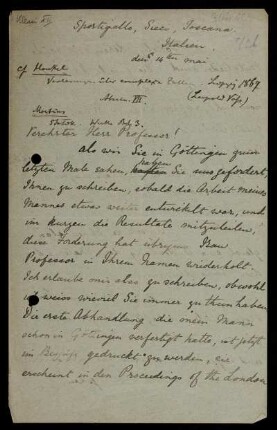 Klein XI
Sportigallo, Siec, Toscana
Italien
den 14ten Mai
cf Hankel
Vorlesungen über complexe Zahlen Leipzig 1867
Ahren III. (Leopold Voss)
Moebius
Statik
Verehrter Herr Professor!
als wir Sie in Göttingen zum
letzten Male sahen, haben Sie uns aufgefordert,
Ihnen zu schreiben, sobald die Arbeit meines
Mannes etwas weiter entwickelt war, und
im kurzen die Resultate mitzuteilen,
diese Forderung hat übrigens Frau
Professor in Ihrem Namen wiederholt.
Ich erlaube mir also zu schreiben, obwohl
ich weiss wieviel Sie immer zu thun haben.
Die erste Abhandlung die mein Mann
schon in Göttingen verfertigt hatte, ist jetzt
im gedruckt zu werden, sie
erscheint in den Proceedings of the London